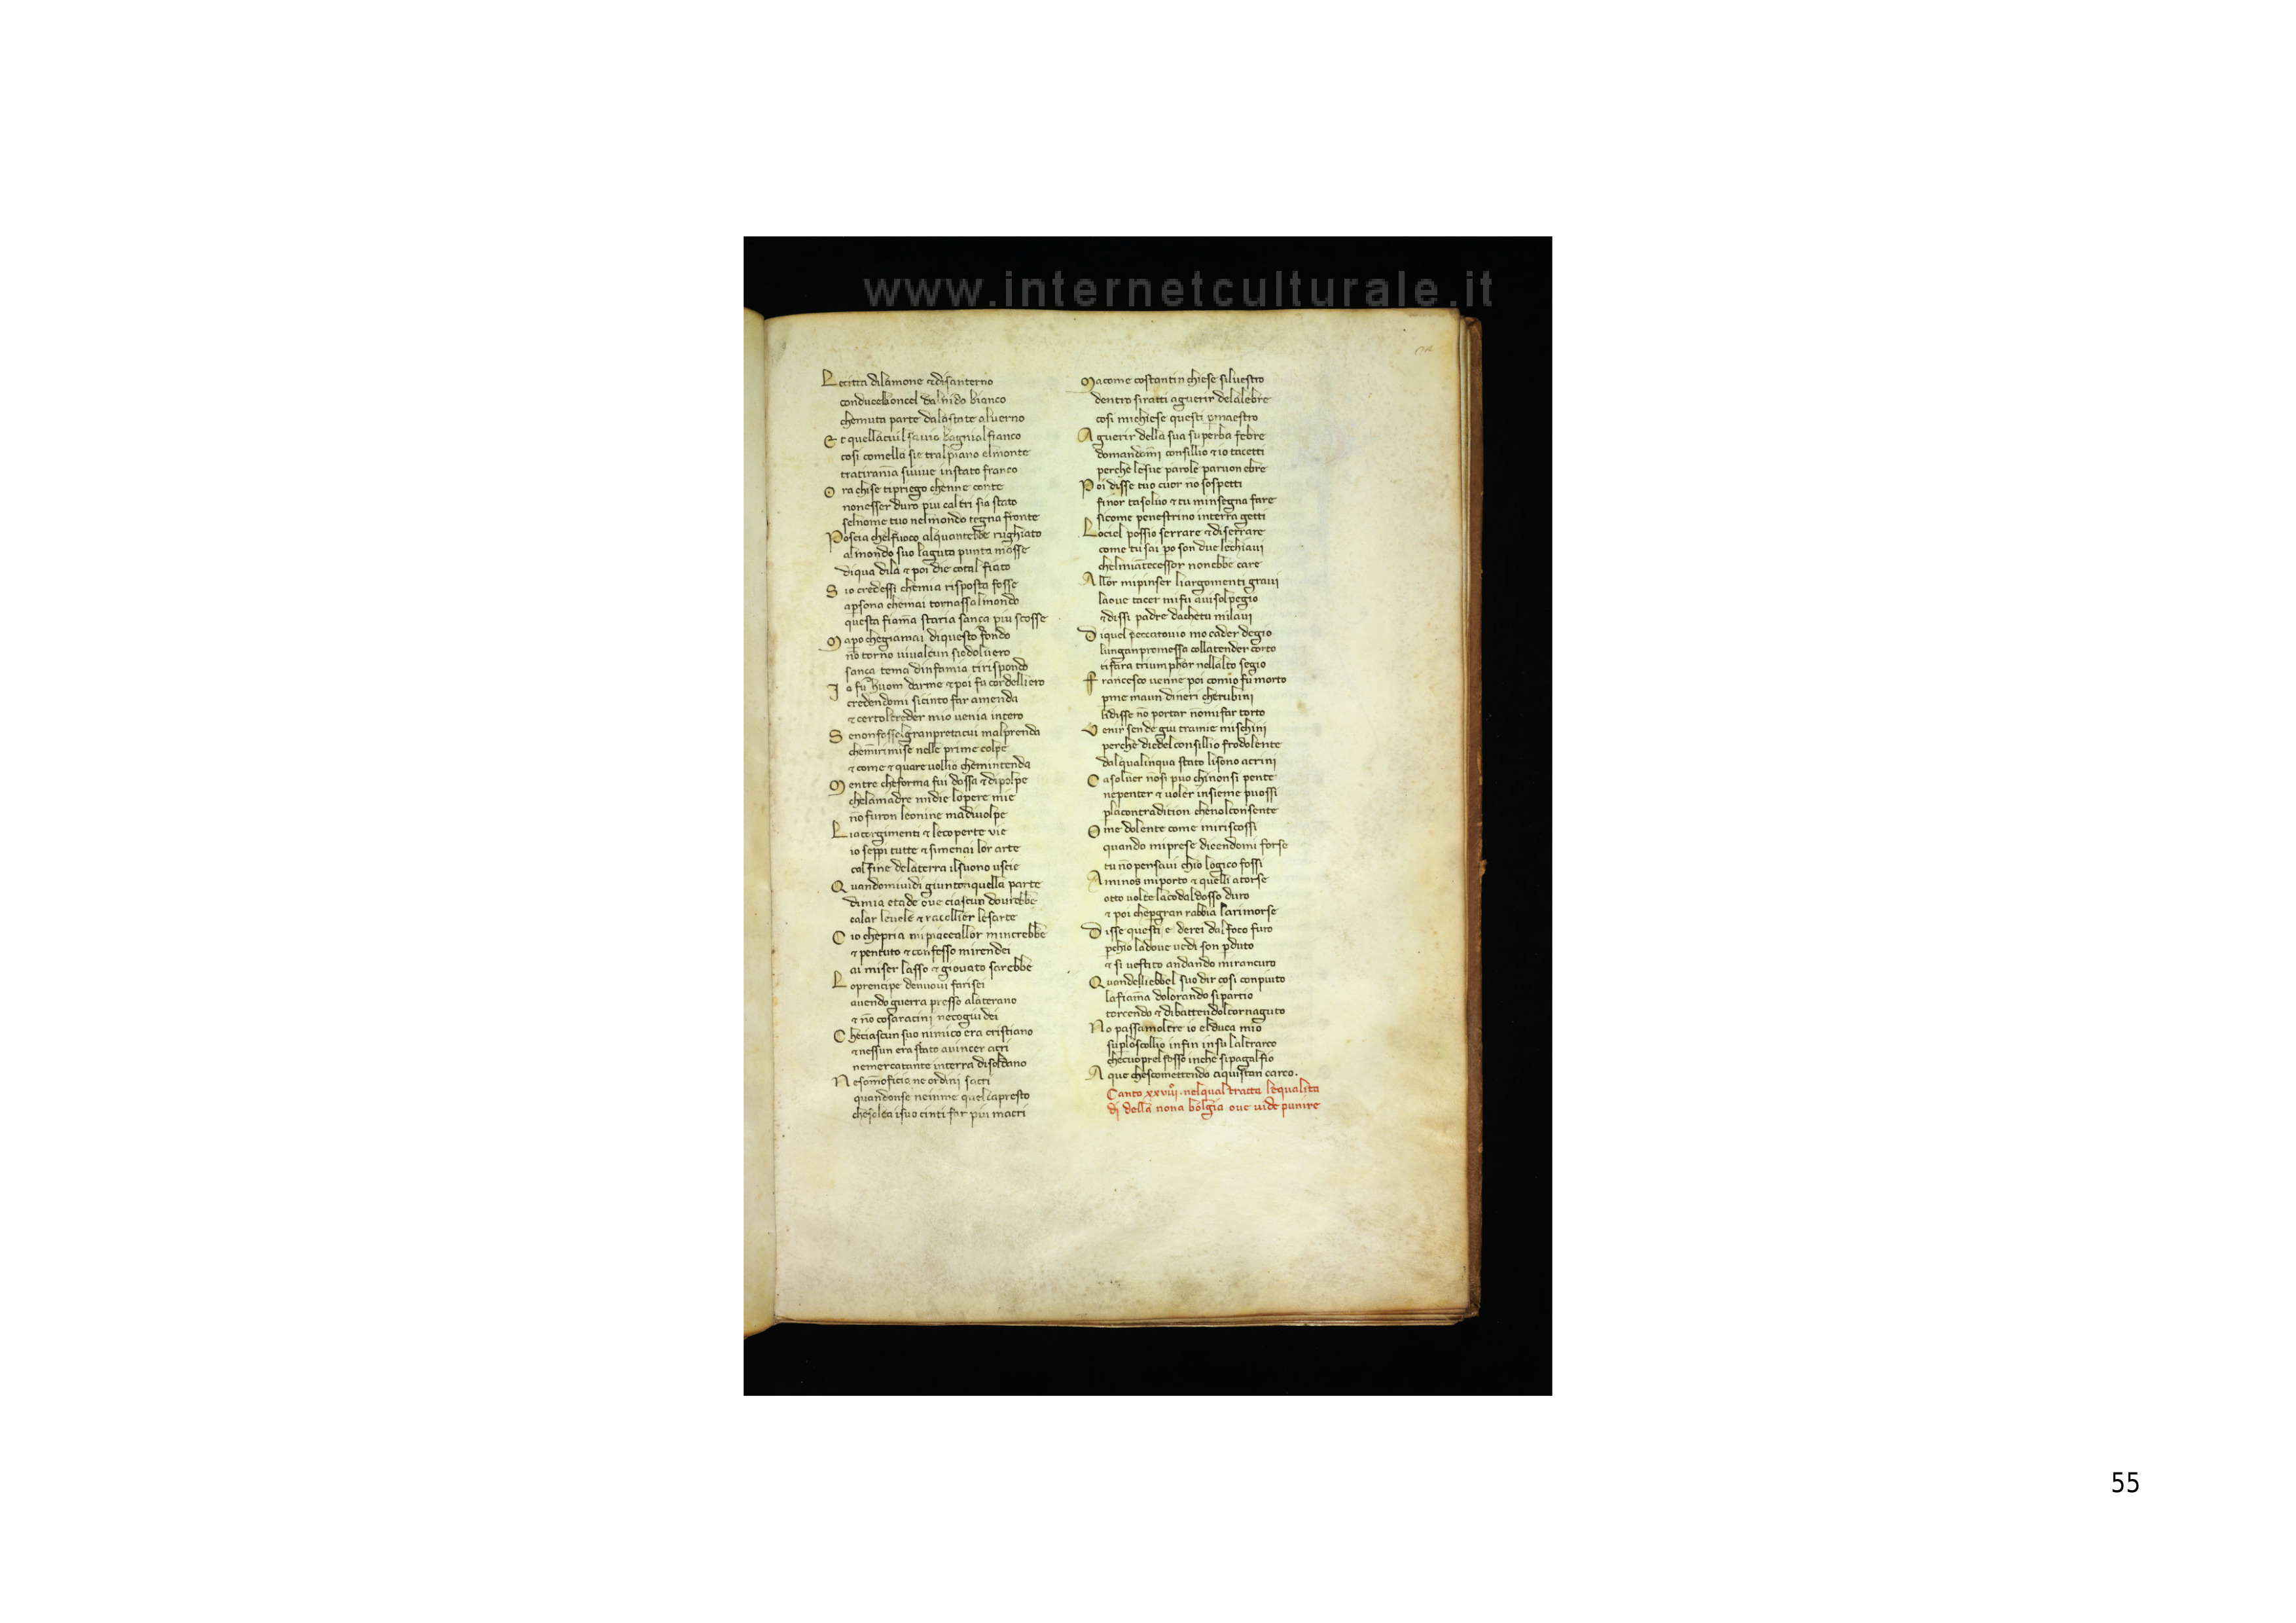 www.internetculturale.it
Le citta dilamone ⁊ disanterno
conducelioncel dalnido bianco
chemuta parte dalastate aluerno
Et quellacuil sauio bagnialfianco
cosi comella sie tralpiano elmonte
tratirania siuiue instato franco
Ora chise tipriego chenne conte
nonesser duro piu caltri sia stato
selnome tuo nelmondo tegna fronte
Poscia chelfuoco alquantebbe rughiato
almondo suo laguta punta mosse
diqua dila ⁊ poi die cotal fiato
Sio credessi chemia risposta fosse
apsona chemai tornassalmondo
questa fiama staria sanca piu scosse
Mapo chegiamai diquesto fondo
no torno uiualcun siodoluero
sanca tema dinfamia tirispondo
Io fu huom darme ⁊ poi fu cordelliero
credendomi sicinto far amenda
⁊ certolcreder mio uenia intero
Senonfosselgranpretacui malprenda
chemirimise nelle prime colpe
⁊ come ⁊ quare uollio chemintenda
Mentre cheforma fui dossa ⁊ dipolpe
chelamadre midie lopere mie
no furon leonine madiuolpe
Liacorgimenti ⁊ lecoperte uie
io seppi tutte ⁊ simenai lor arte
calfine delaterra ilsuono uscie
Quandomiuidi giuntonquella parte
dimia etade oue ciascun dourebbe
calar leuele ⁊ racollier lesarte
Cio chepria mipiaceallor mincrebbe
⁊ pentuto ⁊ confesso mirendei
ai miser lasso ⁊ giouato sarebbe
Loprencipe denuoui farisei
auendo guerra presso alaterano
⁊ no cosaracini necogiudei
Checiascun suo nimico era cristiano
⁊ nessun era stato auincer acri
nemercatante interra disoldano
Ne somoficio ne ordini sacri
guardonse neinme quelcapresto
chesolea isuo cinti far piu macri
Macome costantin chiese siluestro
dentro siratti aguerir delalebre
cosi michiese questi pmaestro
Aguerir della sua superba febre
domandomi consillio ⁊ io tacetti
perche lesue parole paruon ebre
Poi disse tuo cuor no sospetti
finor tasoluo ⁊ tu minsegna fare
sicome penestrino interra getti
Lociel possio serrare ⁊ diserrare
come tu sai po son due lechiaui
chelmiantecessor nonebbe care
Allor mipinser liargomenti graui
laoue tacer mifu auisolpegio
⁊ dissi padre dachetu milaui
Diquel peccatouio mo cader degio
lunganpromessa collatender corto
tifara triumphar nellalto segio
Francesco uenne poi comio fu morto
pme maun dineri cherubini
lidisse no portar nomifar torto
Venir sende giu tramie mischini
perche diedelconsillio frodolente
dalqualinqua stato lisono acrini
Casoluer nosi puo chinonsi pente
nepenter ⁊ uoler insieme puossi
placontradition chenolconsente
Ome dolente come miriscossi
quando miprese dicendomi forse
tu no pensaui chio logico fossi
Aminos miporto ⁊ quelli atorse
otto uolte lacodaldosso duro
⁊ poi chepgran rabbia larimorse
Disse questi e derei dalfoco furo
pchio ladoue uedi son pduto
⁊ si uestito andando mirancuro
Quandelliebbel suo dir cosi conpiuto
lafiama dolorando sipartio
torcendo ⁊ dibattendolcornaguto
No passamoltre io elduca mio
suploscollio infin insu laltrarco
checuoprelfosso inche sipagalfio
Aque chescomettendo aquistan carco.
Canto xxviii nelqual tratta lequalita
di della nona bolgia oue uide punire
55